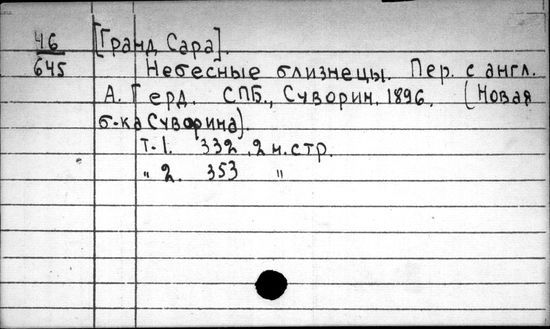 46 [Гранд Сара].
645 Небесные близнецы. Пер. с англ.
А. Герд. СПБ., Суворин, 1896. (Новая
б-ка Суворина).
т. 1. 332, 2 н. стр.
" 2. 353 "